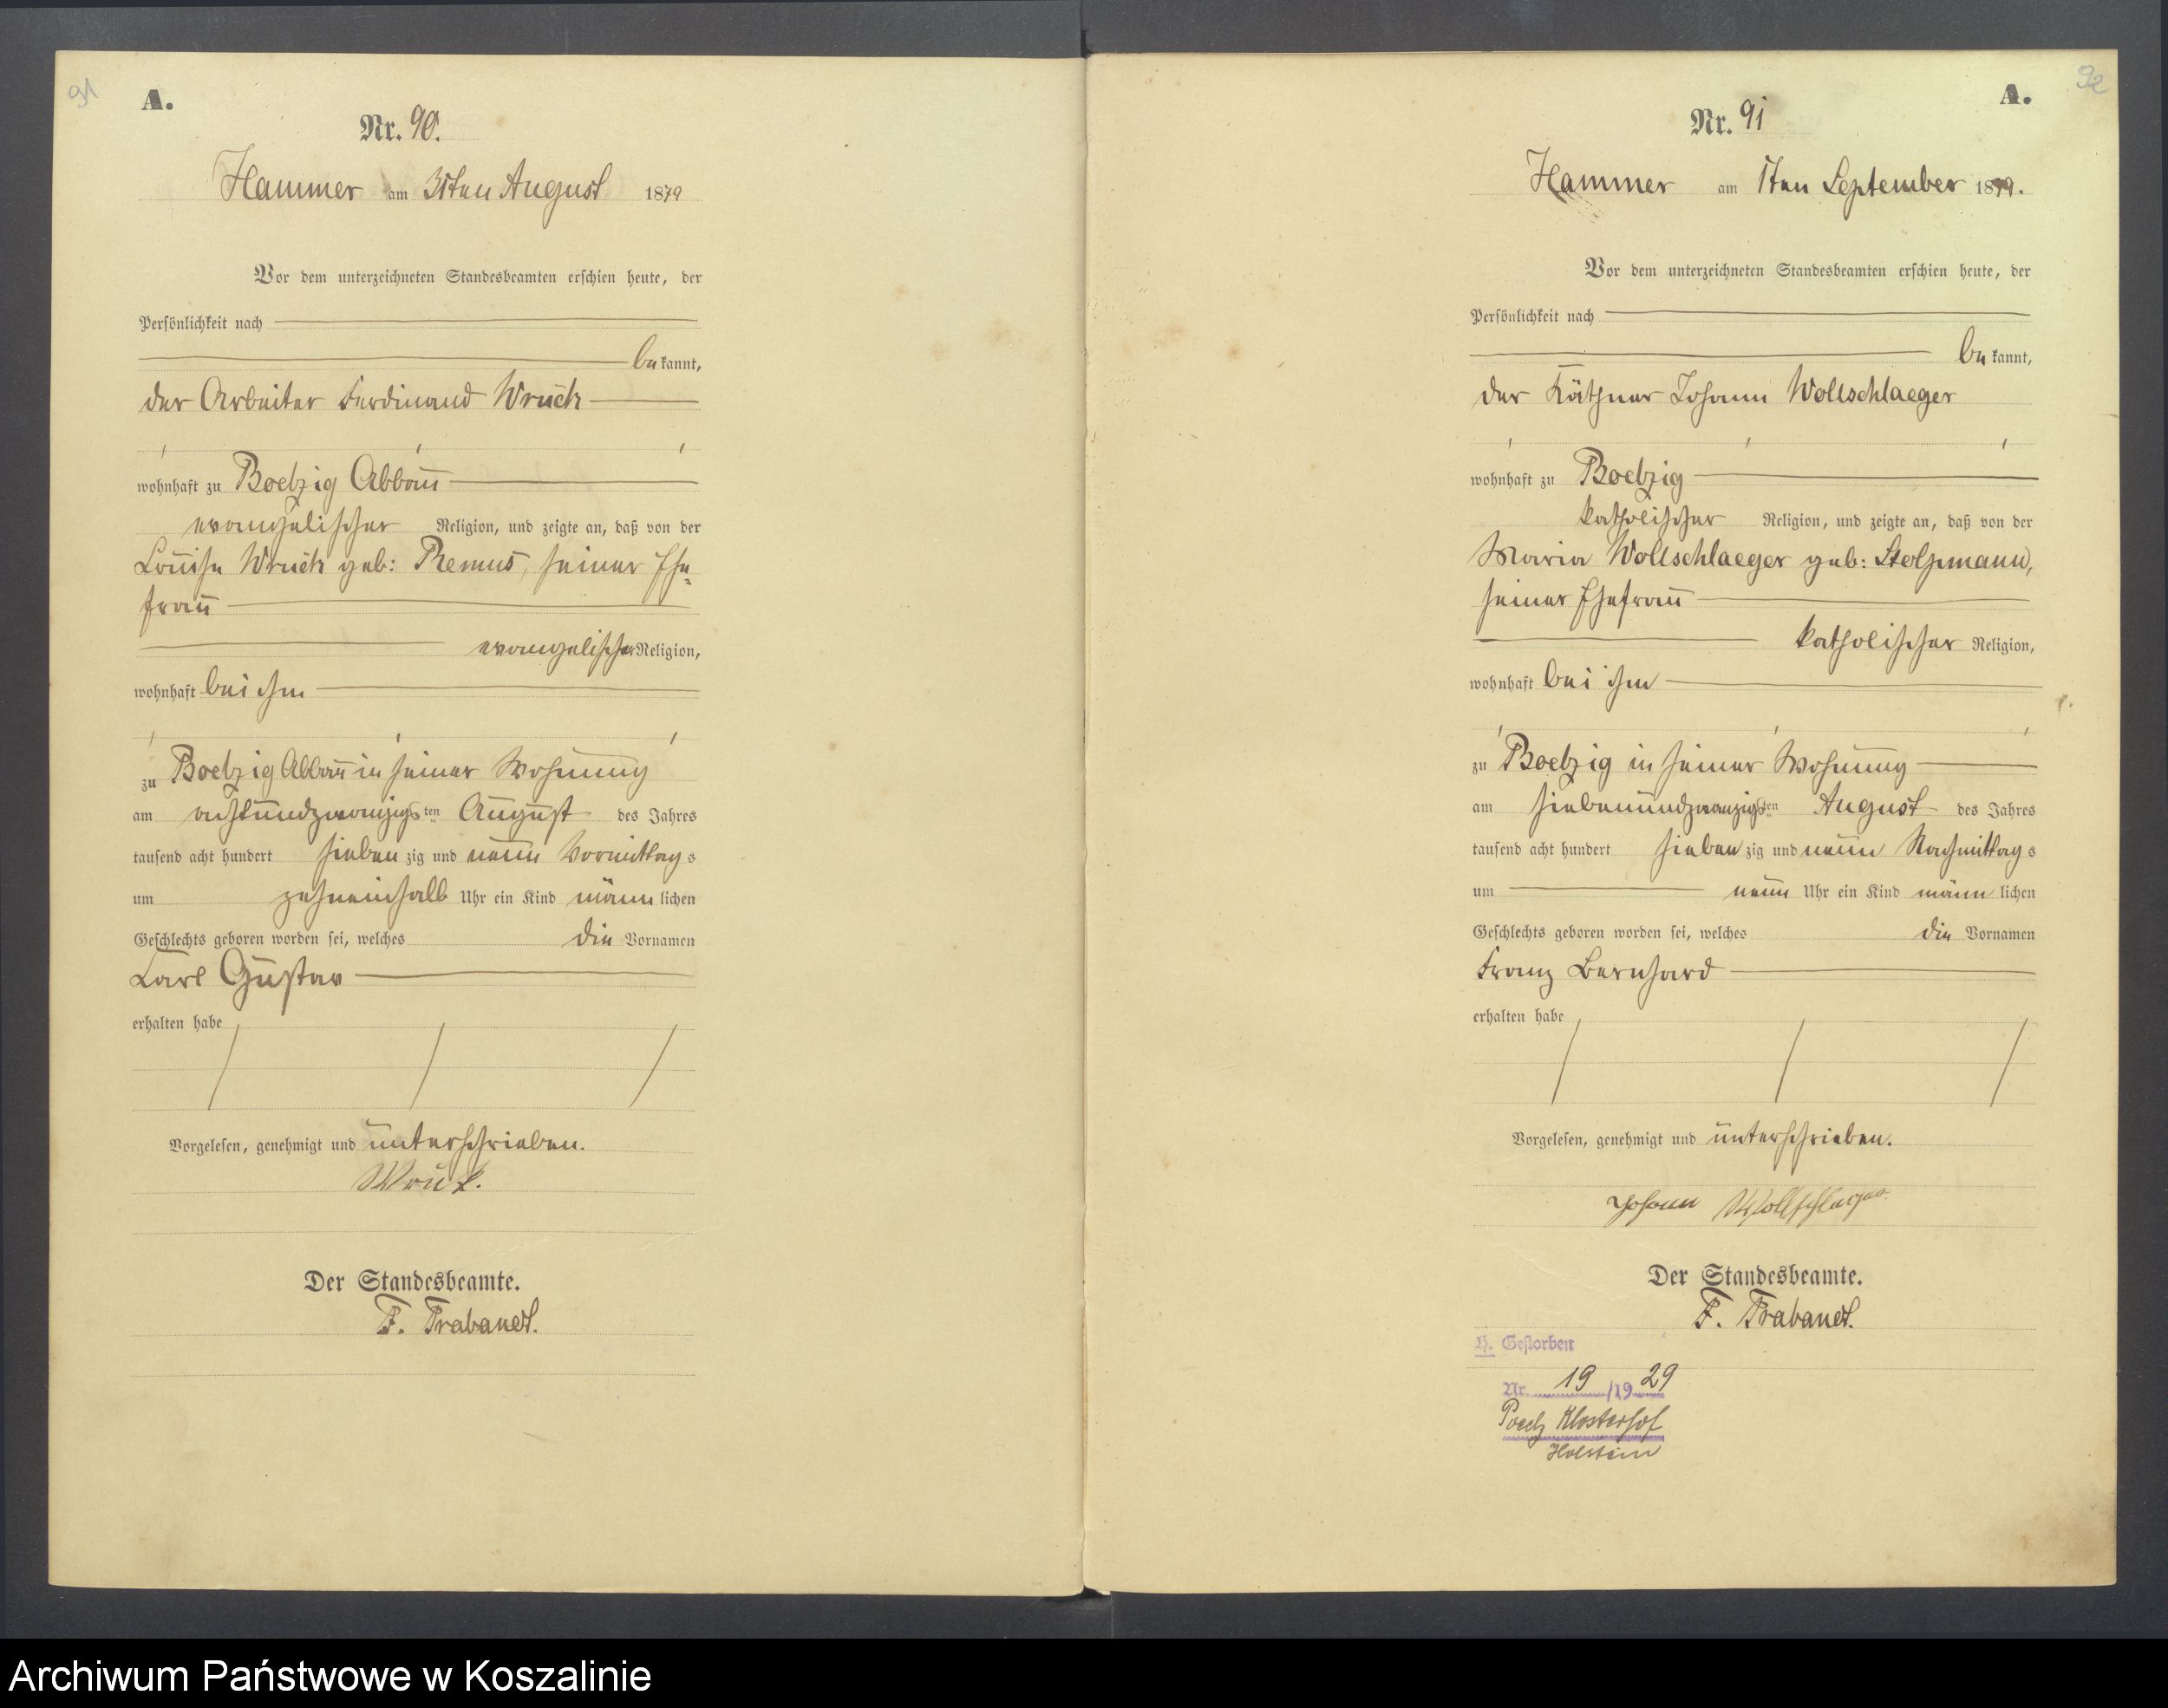 91
A.
Nr. 90.
Hammer am 31ten August 1879
Vor dem unterzeichneten Standesbeamten erschien heute, der
Persönlichkeit nach
bekannt,
der Arbeiter Ferdinand Wruck
wohnhaft zu Boelzig Abbau
evangelischer Religion, und zeigte an, daß von der
Louise Wruck geb: Remus, seiner Ehe-
frau
evangelischer Religion,
wohnhaft bei ihm
zu Boelzig Abbau in seiner Wohnung
am achtundzwanzigsten August des Jahres
tausend acht hundert siebenzig und neun Vormittags
um zehneinhalb Uhr ein Kind männlichen
Geschlechts geboren worden sei, welches die Vornamen
Carl Gustav
erhalten habe
Vorgelesen, genehmigt und unterschrieben.
Wruck.
Der Standesbeamte.
F. Trabandt.
92
A.
Nr. 91
Hammer am 1ten September 1879.
Vor dem unterzeichneten Standesbeamten erschien heute, der
Persönlichkeit nach
bekannt,
der Käthner Johann Wollschlaeger
wohnhaft zu Boelzig
katholischer Religion, und zeigte an, daß von der
Maria Wollschlaeger geb: Stolpmann,
seiner Ehefrau
katholischer Religion,
wohnhaft bei ihm
zu Boelzig in seiner Wohnung
am siebenundzwanzigsten August des Jahres
tausend acht hundert siebenzig und neun Nachmittags
um neun Uhr ein Kind männlichen
Geschlechts geboren worden sei, welches die Vornamen
Franz Bernhard
erhalten habe
Vorgelesen, genehmigt und unterschrieben.
Johann Wollschlaeger
Der Standesbeamte.
F. Trabandt.
H. Gestorben
Nr. 19/1929
Klosterhof
Holstein
Archiwum Państwowe w Koszalinie